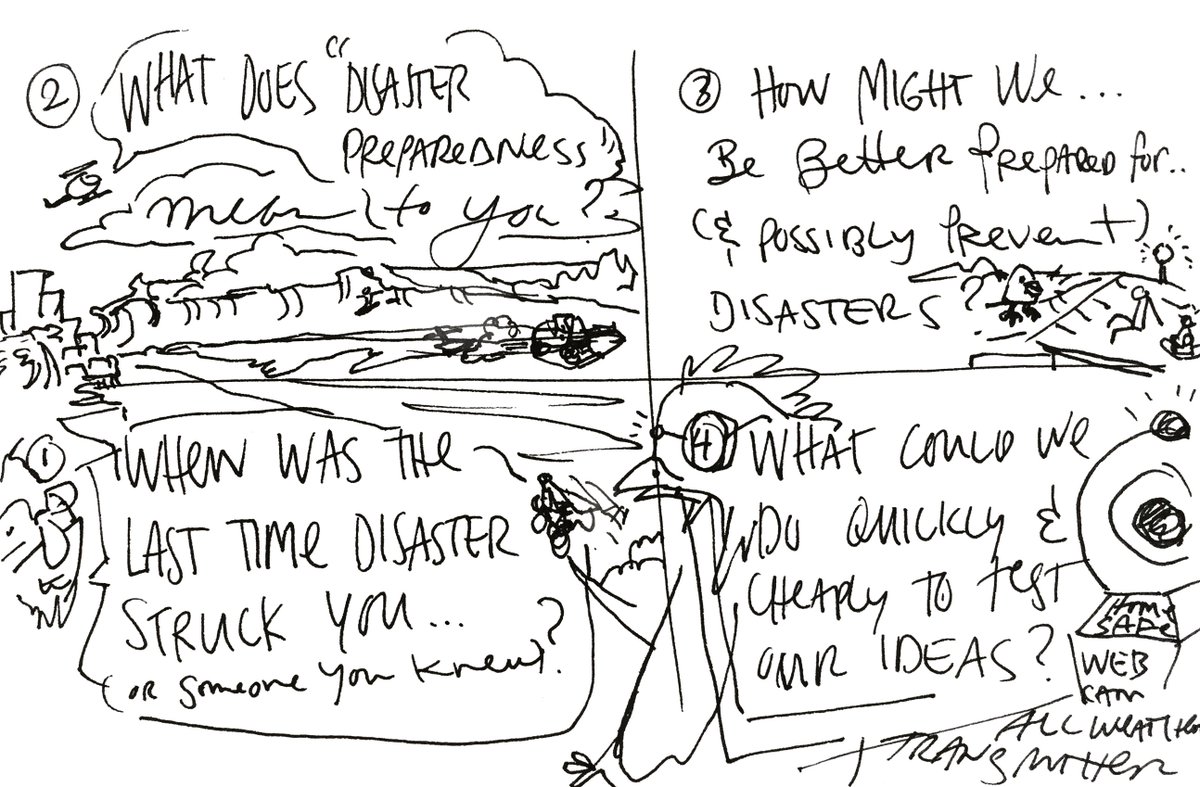 ② WHAT DOES "DISASTER
PREPAREDNESS"
mean to you?
③ HOW MIGHT WE...
Be Better Prepared for..
(& POSSIBLY Prevent)
DISASTERS?
① WHEN WAS THE
LAST TIME DISASTER
STRUCK YOU...
(or someone you knew)?
④ WHAT COULD WE
DO QUICKLY &
CHEAPLY TO TEST
OUR IDEAS?
HOME
SAFE
WEB
CAM
ALL WEATHER
TRANSMITTER